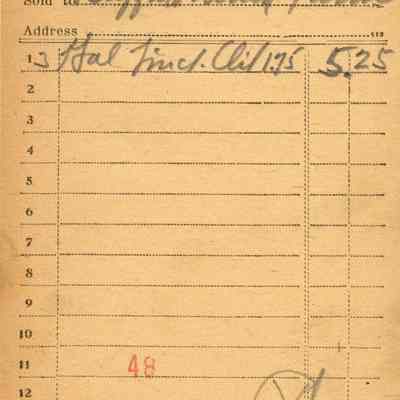 Sold to
Address
1 3 Gal Linct. Chl 1.75 5.25
2
3
4
5
6
7
8
9
10
11 48
12